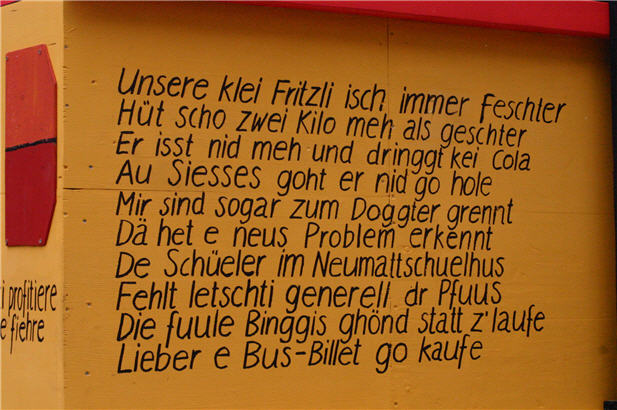 Unsere klei Fritzli isch immer feschter
Hüt scho zwei Kilo meh als geschter
Er isst nid meh und dringgt kei Cola
Au Siesses goht er nid go hole
Mir sind sogar zum Doggter grennt
Dä het e neus Problem erkennt
De Schüeler im Neumattschuelhus
Fehlt letschti generell dr Pfuus
Die fuule Binggis ghönd statt z'laufe
Lieber e Bus-Billet go kaufe
profitiere
fiehre